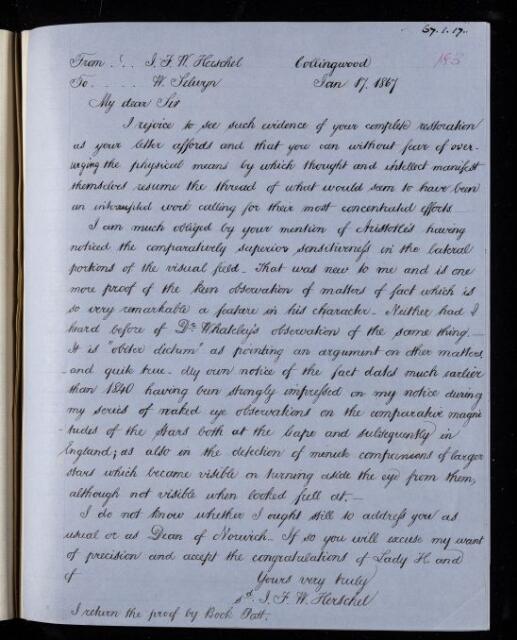 67.1.17.
From . . . J. F. W. Herschel Collingwood 193
To . . . . W. Selwyn Jan 17. 1867
My dear Sir
I rejoice to see such evidence of your complete restoration
as your letter affords and that you can without fear of over-
urging the physical means by which thought and intellect manifest
themselves resume the thread of what would seem to have been
an interrupted work calling for their most concentrated efforts
I am much obliged by your mention of Aristotle's having
noticed the comparatively superior sensitiveness in the lateral
portions of the visual field – That was new to me and is one
more proof of the keen observation of matters of fact which is
so very remarkable a feature in his character – Neither had I
heard before of Dr. Whateley's observation of the same thing. –
It is "obiter dictum" as pointing an argument on other matters
– and quite true – My own notice of the fact dates much earlier
than 1840 having been strongly impressed on my notice during
my series of naked eye observations on the comparative magni
- tudes of the Stars both at the Cape and subsequently in
England; as also in the detection of minute companions of larger
stars which became visible on turning aside the eye from them,
although not visible when looked full at. –
I do not know whether I ought still to address you as
usual or as Dean of Norwich – If so you will excuse my want
of precision and accept the congratulations of Lady H. and
of Yours very truly
sd. J. F. W. Herschel
I return the proof by Book Post.